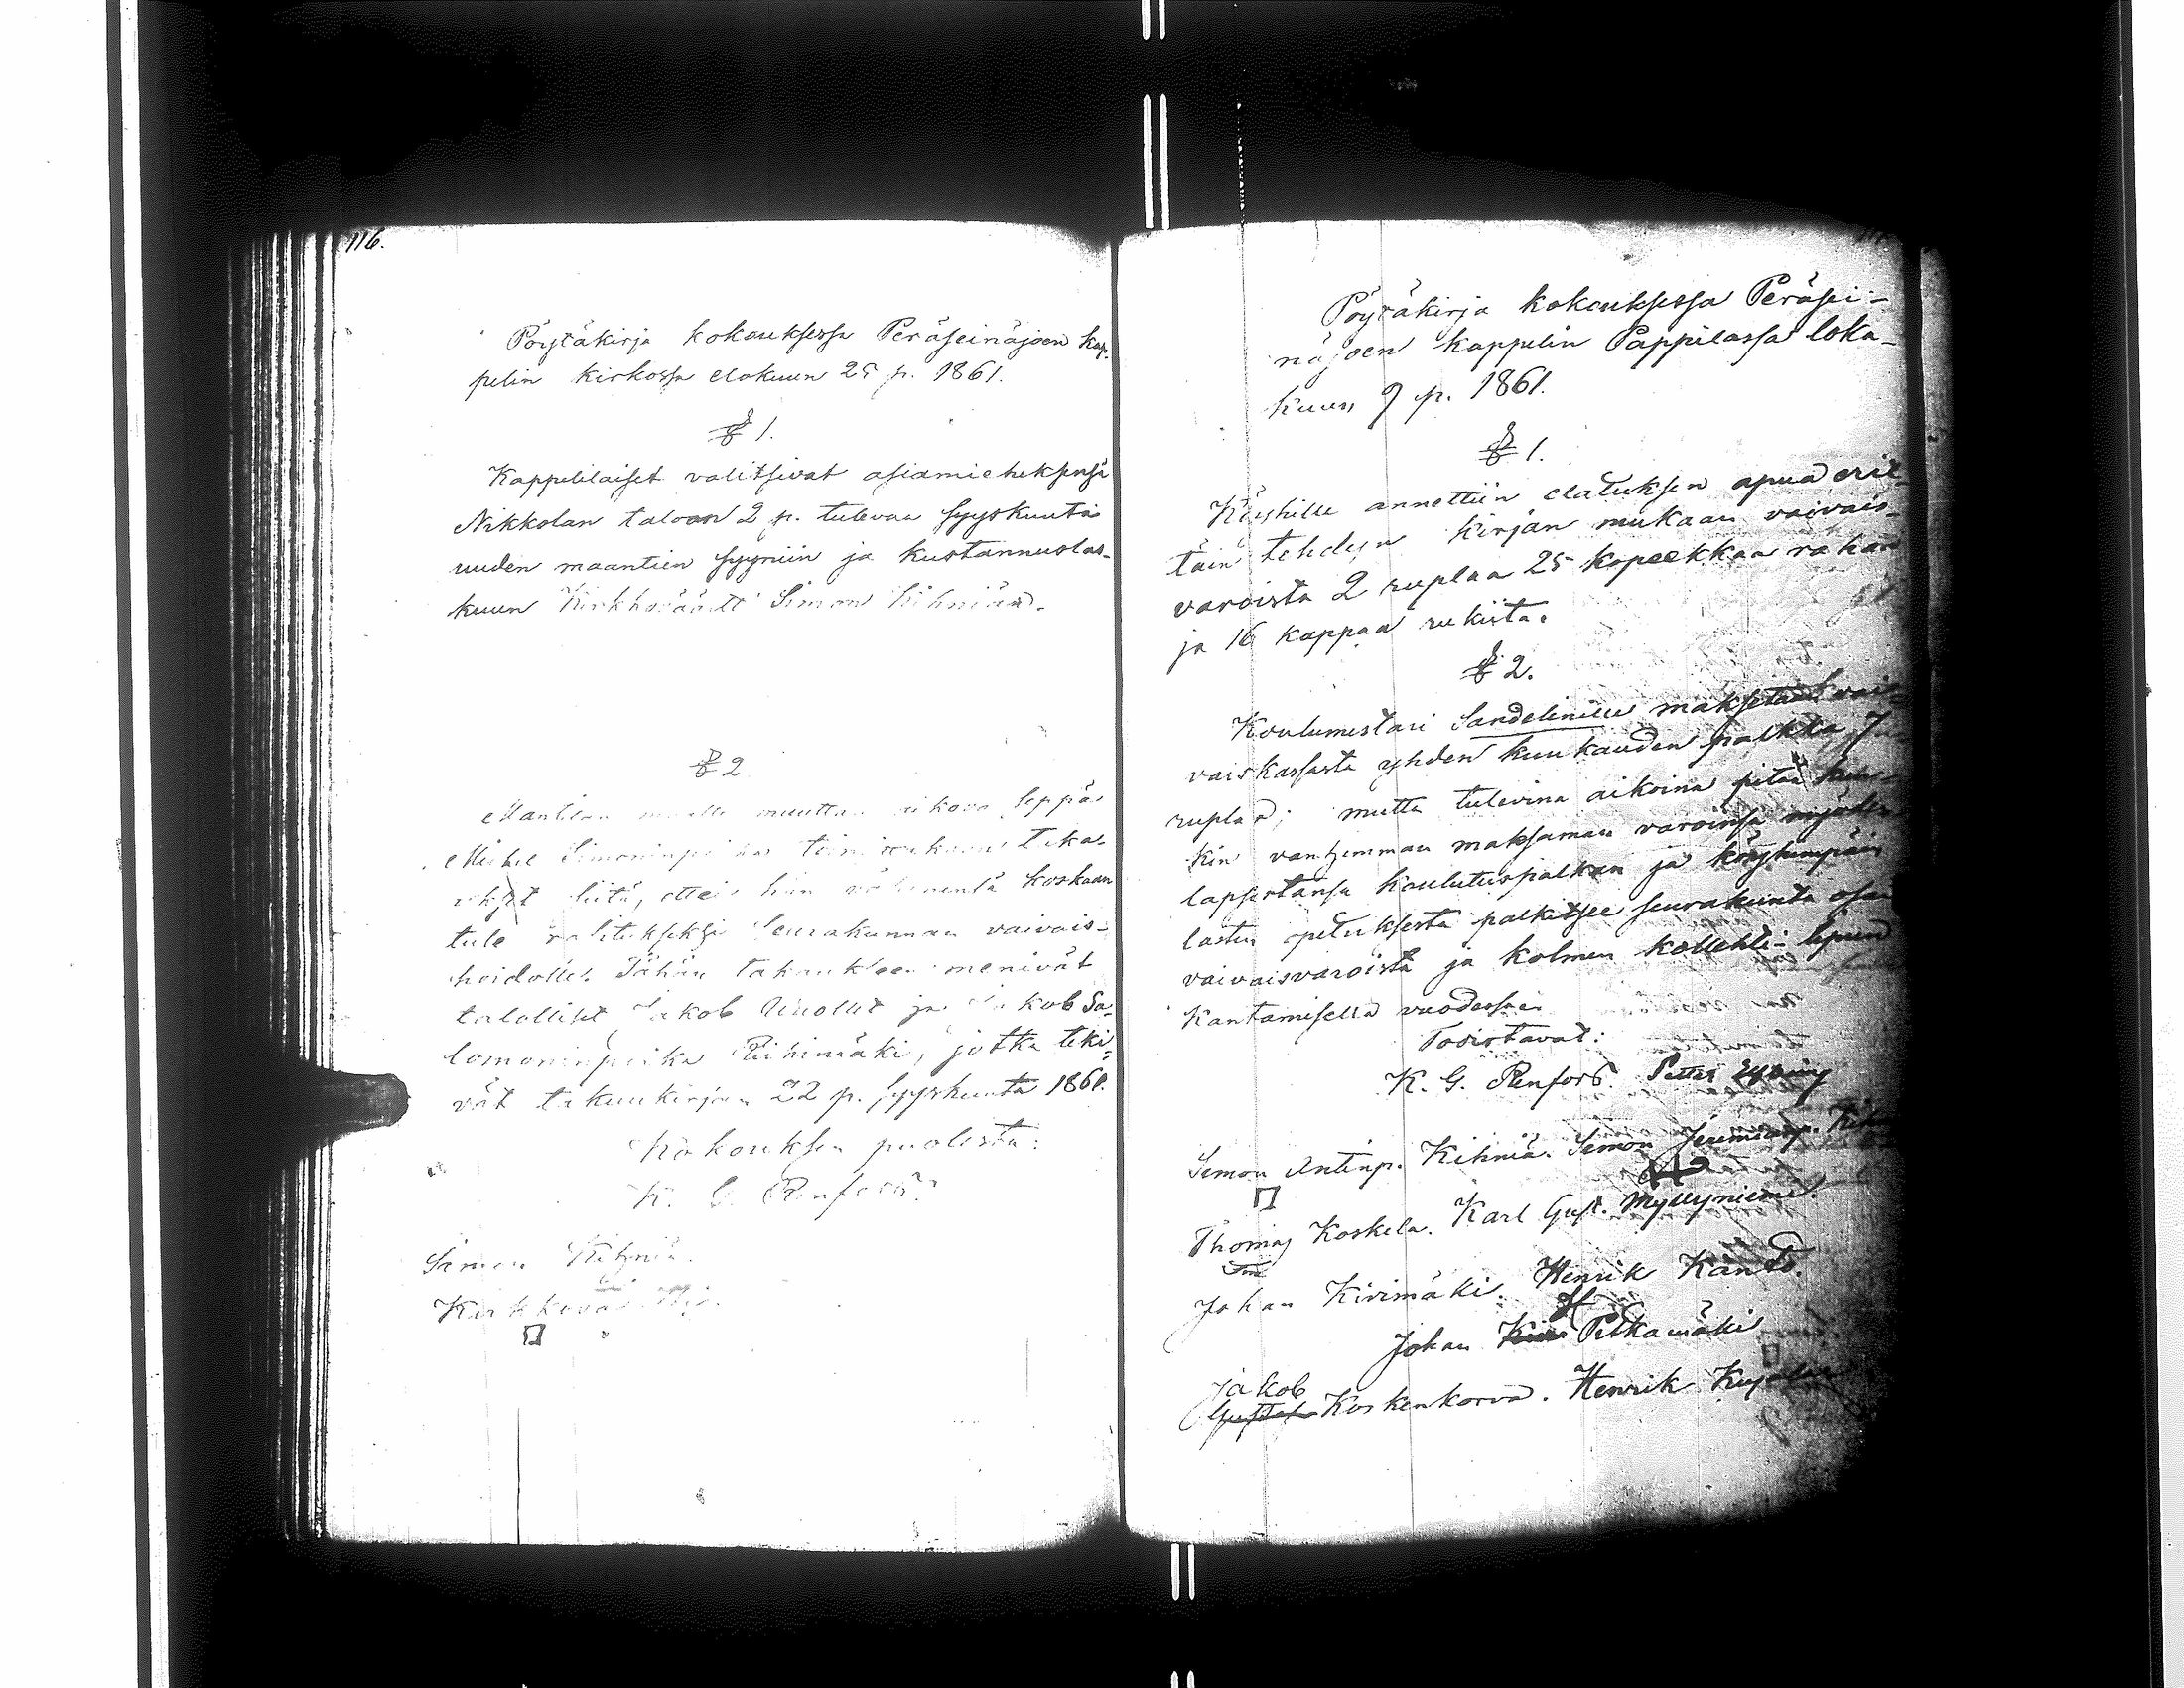 116.
Pöytäkirja kokouksessa Peräseinäjoen kap-
pelin kirkossa elokuun 25 p. 1861.
§ 1.
Kappelilaiset valitsivat asiamieheksensä
Nikkolan taloon 2 p. tulevaa Syyskuuta
uuden maantien syyniin ja kustannuslas-
kuun Kirkkoväärtt Simon Kihniän.
§ 2
muuttaa aikova seppä
Michel Simoninpoika
siitä, ettei hän vähemmin koskaan
tule rasitukseksi Seurakunnan vaivais-
hoidolle. Tähän takaukseen menivät
talolliset Jakob Uuollut ja Jakob Sa-
lomoninpoika Riihimäki, jotka teki-
vät takuukirjan 22 p. Syyskuuta 1861.
Kokouksen puolesta:
K. G. Renfors.
Simon Kihniä.
Kirkkovääртti.
Pöytäkirja kokouksessa Peräsei-
näjoen kappelin Pappilassa loka-
kuun 9 p. 1861.
§ 1.
annettiin elatuksen apua eril-
täin tehdyn kirjan mukaan vaivais-
varoista 2 ruplaa 25 kopeekkaa rahaa
ja 16 kappaa rukiita.
§ 2.
Koulumestari Sandelinille maksetaan vai-
vaiskassasta yhden kuukauden palkka 7
ruplaa; mutta tulevina aikoina pitää kun-
kin vanhemman maksaman varoinsa myöden
lapsestansa koulutuspalkan ja köyhempäin
lasten opetuksesta palkitsee seurakunta osan
vaivaisvaroista ja kolmen kollehti-
kantamisella vuodessa.
Todistavat:
K. G. Renfors. Petter
Simon Antinp. Kihniä. Simon Jeremianp.
Thomas Koskela. Karl Gust. Myllyniemi.
Johan Kivimäki. Henrik Käntö.
Johan Pitkämäki
Jakob
Gustaf Koskenkorva. Henrik Kujala